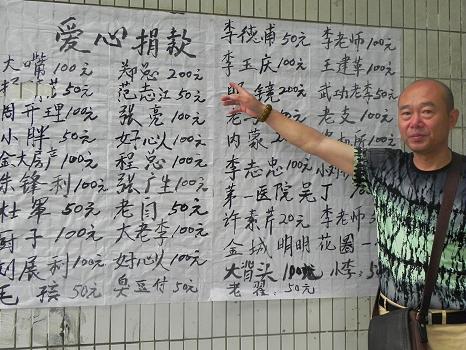 爱心捐款
大嘴100元
50元
周开理100元
小胖50元
金大房产100元
朱锋利100元
杜军50元
厨子100元
刘展利100元
毛孩50元
郑总200元
范志江50元
张亮100元
好心人100元
程总100元
张广生100元
老闫50元
大老李100元
好心人100元
臭豆付50元
李德甫50元
李玉庆100元
眼镜200元
老二
内蒙
李志忠100元
第一医院吴丁
许素芹20元
金城明明
大背头100元
老翟:50元
李老师100元
王建华100元
武功老李50元
老支100元
100元
小刘
李老师50
花圈一
小李:50元